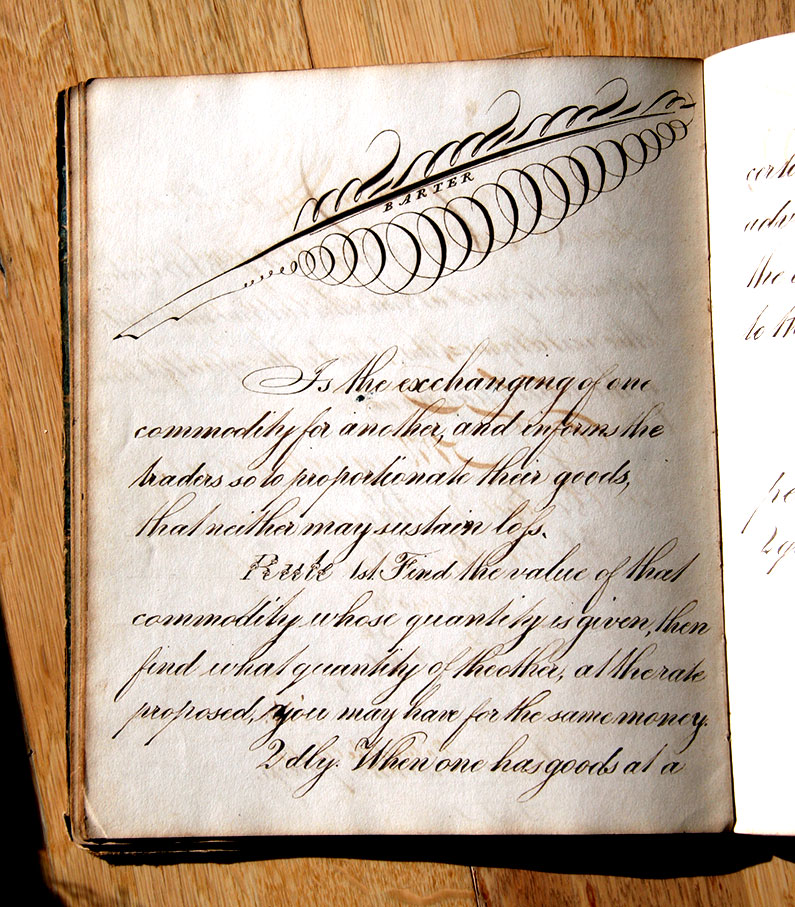 BARTER
Is the exchanging of one
commodity for another, and informs the
traders so to proportionate their goods,
that neither may sustain loſs.
Rule 1st. Find the value of that
commodity whose quantity is given, then
find what quantity of the other, at the rate
proposed, you may have for the same money.
2dly. When one has goods at a
the
to th